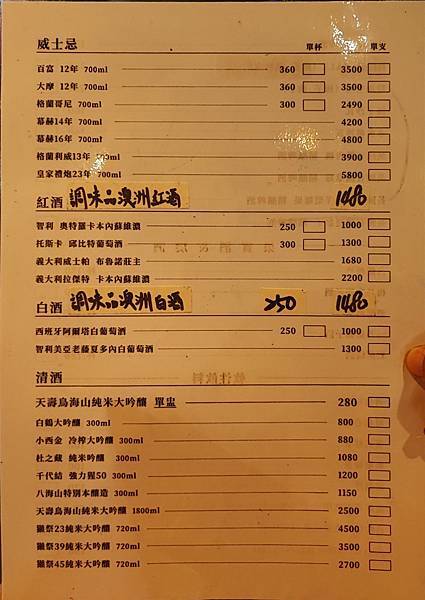 威士忌 單杯 單支
百富 12年 700ml 360 3500
大摩 12年 700ml 360 3500
格蘭哥尼 700ml 300 2490
慕赫14年 700ml 4200
慕赫16年 700ml 4800
格蘭利威13年 700ml 3900
皇家禮炮23年 700ml 5800
紅酒 調味品澳洲紅酒 1480
智利 奧特羅卡本內蘇維濃 250 1000
托斯卡 邱比特葡萄酒 300 1300
義大利威士帕 布魯諾莊主 1680
義大利拉傑特 卡本內蘇維濃 2200
白酒 調味品澳洲白酒 250 1480
西班牙阿爾塔白葡萄酒 250 1000
智利美亞老藤夏多內白葡萄酒 1300
清酒
天壽鳥海山純米大吟釀 單盅 280
白鶴大吟釀 300ml 800
小西金 冷榨大吟釀 300ml 880
杜之藏 純米吟釀 300ml 1080
千代結 強力猩50 300ml 1200
八海山特別本釀造 300ml 1150
天壽鳥海山純米大吟釀 1800ml 2500
獺祭23純米大吟釀 720ml 4500
獺祭39純米大吟釀 720ml 3500
獺祭45純米大吟釀 720ml 2700